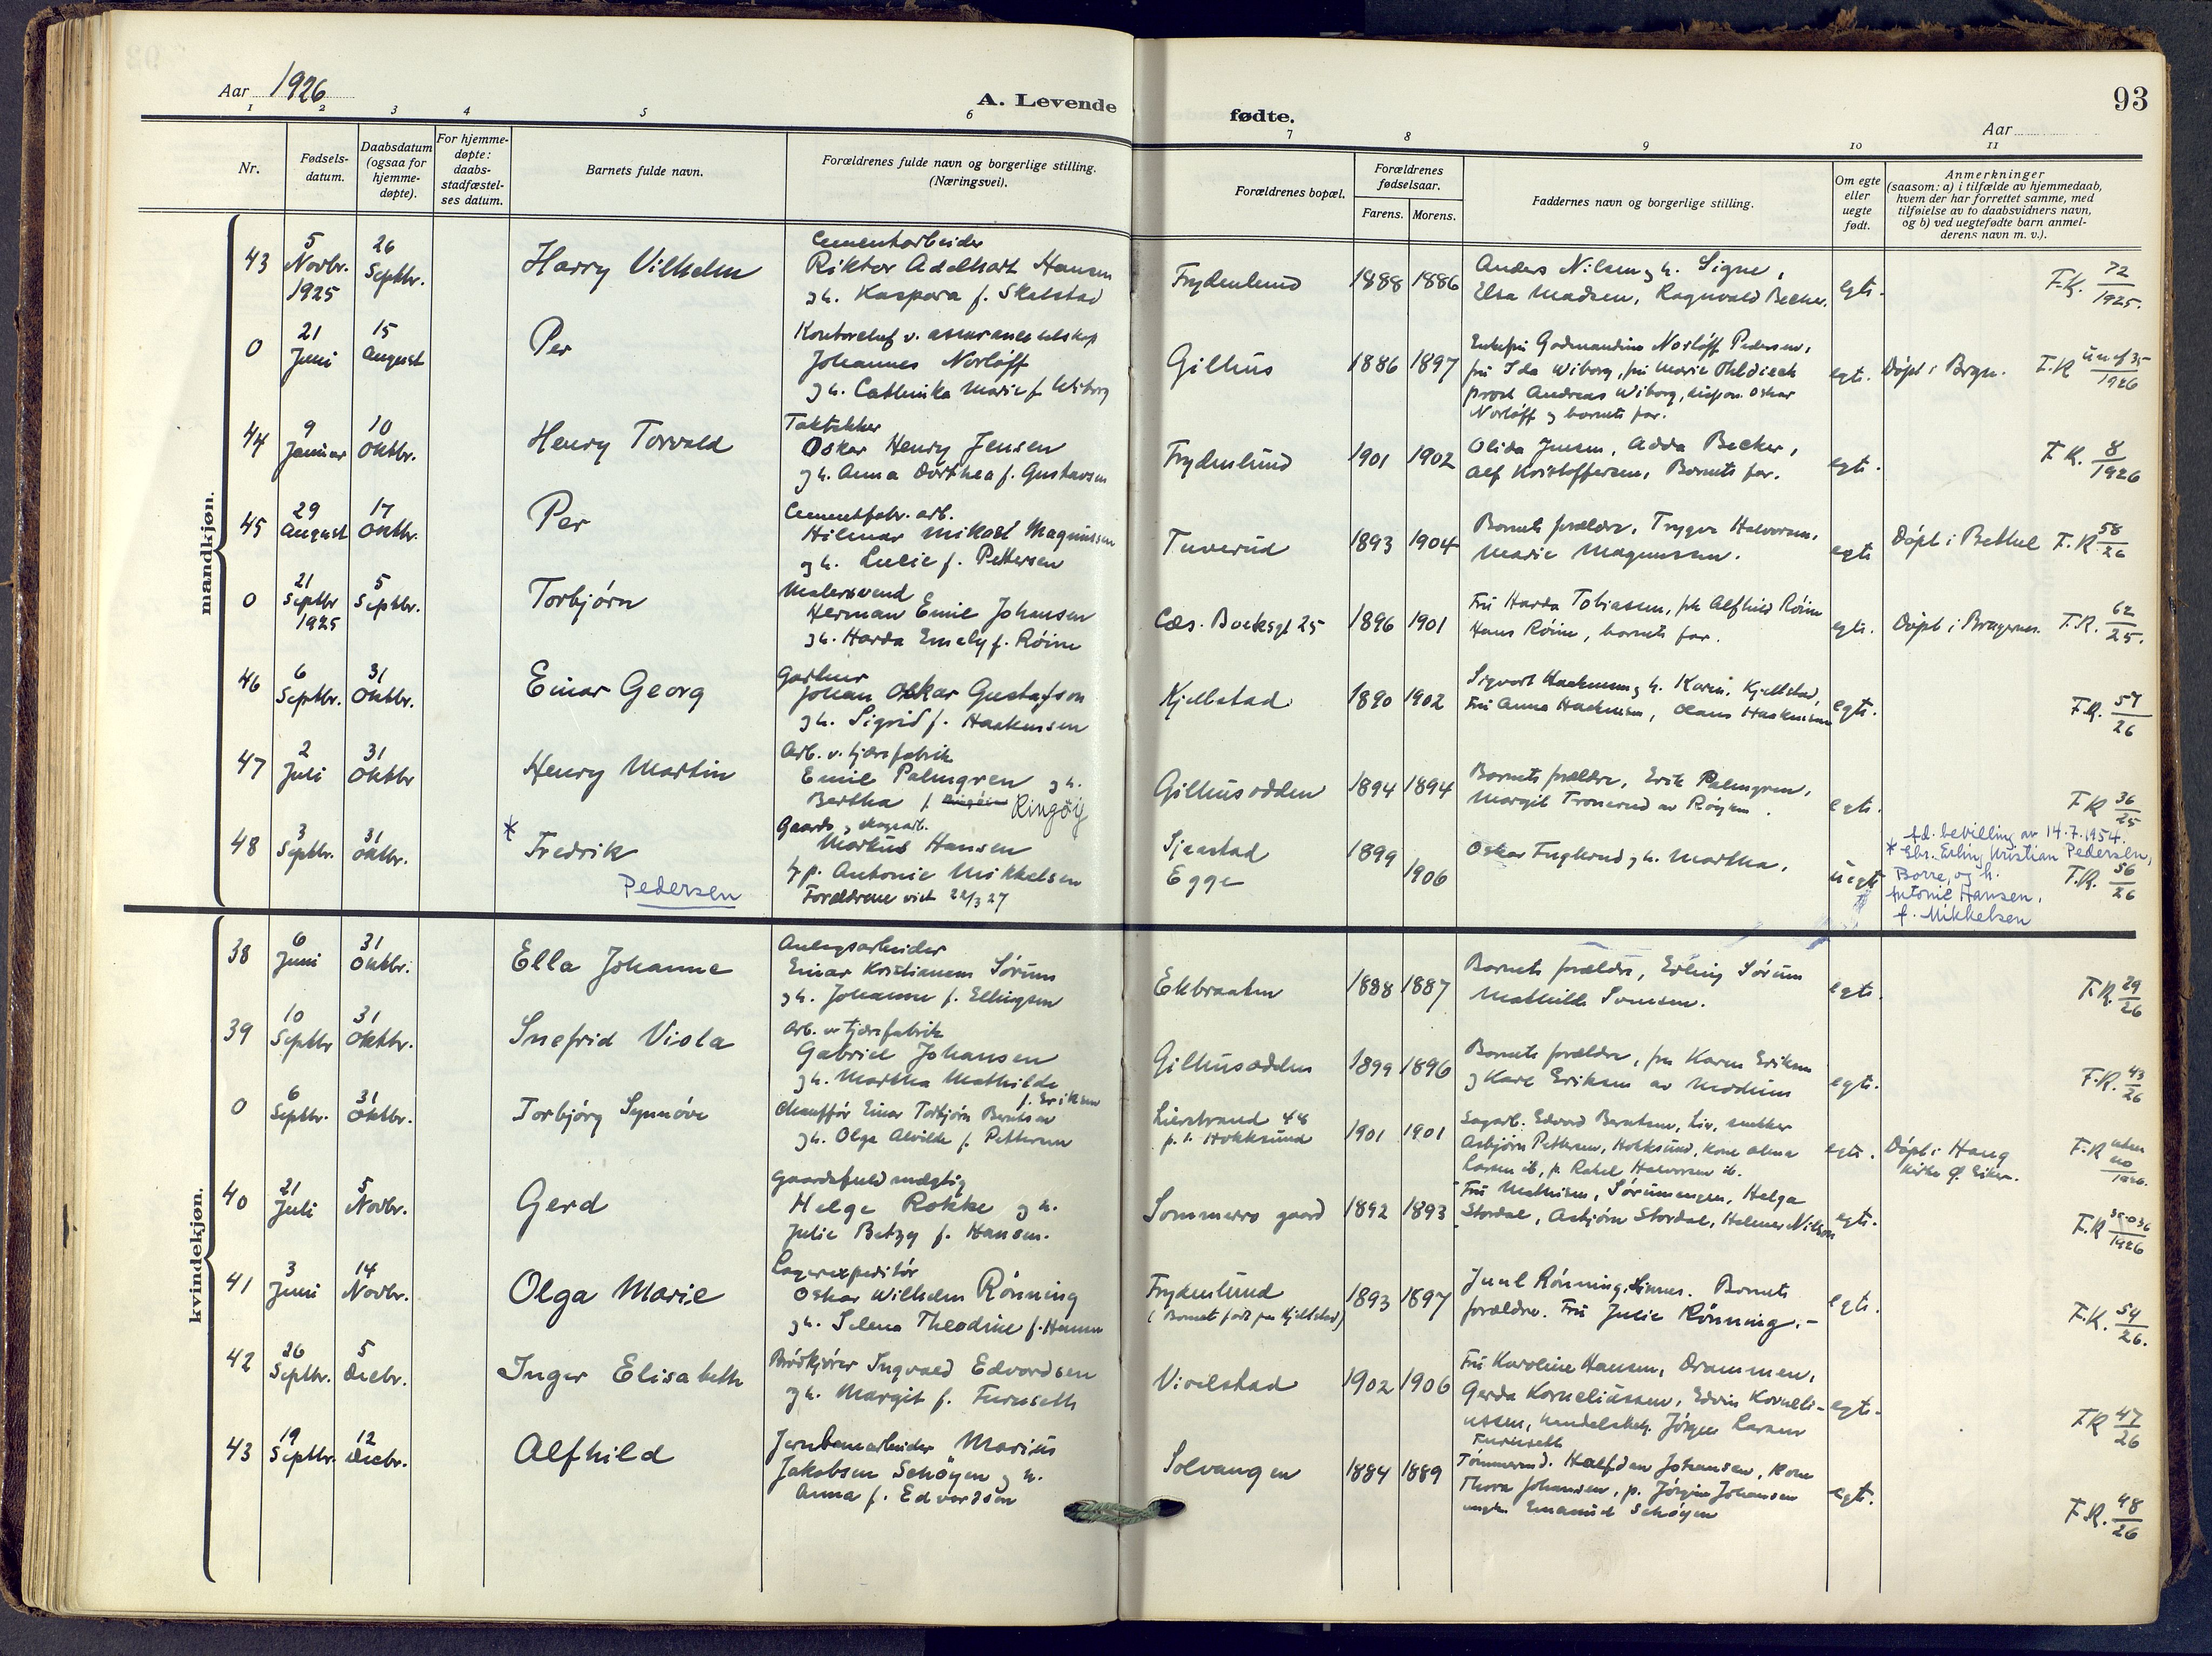 Aar 1926
A. Levende
fødte.
93
Aar
1 2 3 4 5 6 7 8 9 10 11
Nr.
Fødsels-
datum.
Daabsdatum
(ogsaa for
hjemme-
døpte).
For hjemme-
døpte:
daabs-
stadfæstel-
ses datum.
Barnets fulde navn.
Forældrenes fulde navn og borgerlige stilling.
(Næringsvei).
Forældrenes bopæl.
Forældrenes
fødselsaar.
Farens. Morens.
Faddernes navn og borgerlige stilling.
Om egte
eller
uegte
født.
Anmerkninger
(saasom: a) i tilfælde av hjemmedaab,
hvem der har forrettet samme, med
tilføielse av to daabsvidners navn,
og b) ved uegtefødte barn anmel-
derens navn m. v.).
mandkjøn.
43
5
Novbr.
1925
26
Septbr.
Harry Vilhelm
Cementarbeider
Riktor Adelhart Hansen
og h. Kaspara f. Skalstad
Frydenlund
1888 1886
Anders Nilsen og h. Signe,
Elsa Madsen, Ragnvald Becker.
egte.
F.K. 72/1925.
0
21
Juni
15
August
Per
Kontorchef v. assuranceselskap
Johannes Norløff
og h. Cathinka Marie f. Wiborg
Gilhus
1886 1897
Norløff Pedersen,
fru Ida Wiborg, fru Marie
prost Andreas Wiborg, dispon. Oskar
Norløff og barnets far.
egte.
Døpt i Brgn.
F.K. 35/1926
44
9
Januar
10
Oktbr.
Henry Torvald
Taktekker
Oskar Henry Jensen
og h. Anna Dorthea f. Gustavsen
Frydenlund
1901 1902
Olida Jensen, Adda Becker,
Alf Kristoffersen, Barnets far.
egte.
F.K. 8/1926
45
29
August
17
Oktbr.
Per
Cementfabr. arb.
Hilmar Mikael Magnussen
og h. Lucie f. Pettersen
Tuverud
1893 1904
Barnets forældre, Trygve Halvorsen,
Marie Magnussen.
egte
Døpt i Bethel
F.K. 58/26
0
21
Septbr
1925
5
Septbr.
Torbjørn
Malersvend
Herman Emil Johansen
og h. Harda Emely f. Røine
Cæs. Boeksgt 25
1896 1901
Fru Harda Tobiassen, frk Alfhild Røine
Hans Røine, barnets far.
egte.
Døpt i Bragernes.
F.K. 62/25.
46
6
Septbr.
31
Oktbr.
Einar Georg
Gartner
Johan Oskar Gustafson
og h. Sigrid f. Haakensen
Kjellstad
1890 1902
Sigvart Haakensen og h. Karin, Kjellstad,
Fru Anna Haakensen, Olaus Haakensen
egte.
F.K. 57/26
47
2
Juli
31
Oktbr
Henry Martin
Arb. v. tjærefabrik
Emil Palmgren og h.
Bertha f. Ringøij
Gilhusodden
1894 1894
Barnets forældre, Erik Palmgren,
Margit Tronerud av Røyken.
egte.
F.K. 36/25
48
3
Septbr.
31
Oktbr.
* Fredrik
Pedersen
Gaards og skogsarb.
Markus Hansen
og p. Antonie Mikkelsen
Forældrene viet 28/3 27
Sjaastad
Egge
1899
1906
Oskar Fuglerud og h. Martha.
uegte
f.d. bevilling av 14.7.1954.
* Ebs. Erling Kristian Pedersen,
Borre, og h.
Antonie Hansen,
f. Mikkelsen
F.K. 56/26
kvindekjøn.
38
6
Juni
31
Oktbr.
Ella Johanne
Anlegsarbeider
Einar Kristiansen Sørum
og h. Johanne f. Ellingsen
Ekbraaten
1888 1887
Barnets forældre, Erling Sørum
Mathilde
egte.
F.K. 29/26
39
10
Septbr
31
Oktbr.
Snefrid Viola
Arb. v. tjærefabrik
Gabriel Johansen
og h. Martha Mathilde
f. Eriksen
Gilhusodden
1899 1896
Barnets forældre, fru Karen Eriksen
og Karl Eriksen av Modum
egte.
F.K. 43/26
0
6
Septbr.
31
Oktbr.
Torbjørg Synnøve
Chauffør Einar Torbjørn Berntsen
og h. Olga Alvilde f. Pettersen
Lierstrand 48
p.t. Hokksund
1901 1901
Sagarb. Edvard Berntsen, Liv, snekker
Asbjørn Pettersen, Hokksund, kone Alma
Larsen ib., p. Rakel Halvorsen ib.
egte.
Døpt i Haug
kirke Ø. Eiker.
F.K.
40
21
Juli
5
Novbr.
Gerd
Gaardsfuldmægtig
Helge Rokke og h.
Julie Betzy f. Hansen.
Sommerro gaard
1892 1893
Fru Mathisen, Sørumengen, Helga
Stordal, Asbjørn Stordal, Halmer Nilsen
egte.
F.K. 1926
41
3
Juni
14
Novbr.
Olga Marie
Lagerexpeditør
Oskar Wilhelm Rønning
og h. Selena Theodine f. Hansen
Frydenlund
(Barnet født paa Kjellstad)
1893 1897
Juul Rønning, Barnets
forældre. Fru Julie Rønning.-
egte.
F.K. 54/26.
42
26
Septbr.
5
Decbr.
Inger Elisabeth
Brødkjører Ingvald Edvardsen
og h. Margit f. Furuseth
Vivelstad
1902 1906
Fru Karoline Hansen, Drammen,
Gerda Korneliussen, Edvin Korneli-
ussen, handelsbetj. Jørgen Larsen
Furuseth
egte.
F.K. 47/26
43
19
Septbr.
12
Decbr.
Alfhild
Jernbanearbeider Marius
Jakobsen Schøyen og h.
Anna f. Edvardsen
Solvangen
1884 1889
Tømmermd. Halfdan Johansen, kone
Thora Johansen, p. Jørgine Johansen
ungk. Emanuel Schøyen
egte.
F.K. 48/26